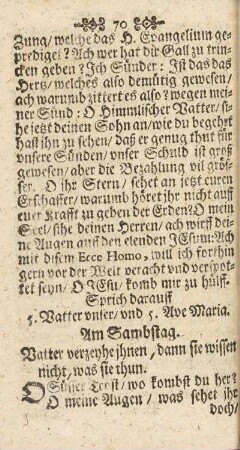 70
Zung/ welche das H. Evangelium ge-
prediget? Ach wer hat dir Gall zu trin-
cken geben? Ich Sünder: Ist das das
Hertz/ welches also demütig gewesen/
ach warumb zittert es also? wegen mei-
ner Sünd: O Himmlischer Vatter/ si-
he jetzt deinen Sohn an/ wie du begehrt
hast jhn zu sehen/ daß er genug thut für
vnsere Sünden/ vnser Schuld ist groß
gewesen/ aber die Bezahlung vil grös-
ser. O ihr Stern/ sehet an jetzt euren
Erschaffer/ warumb höret jhr nicht auff
euer Krafft zu geben der Erden? O mein
Seel/ sihe deinen Herren/ ach wirff dei-
ne Augen auff den elenden JEsum: Ach
mit disem Ecce Homo, will ich forthin
gern vor der Welt veracht vnd verspot-
tet seyn/ O JEsu/ komb mir zu hülff.
Sprich darauff
5. Vatter vnser/ vnd 5. Ave Maria.
Am Sambstag.
Vatter verzeyhe jhnen, dann sie wissen
nicht, was sie thun.
O Süsser Trost/ wo kombst du her?
O meine Augen/ was sehet jhr
doch/